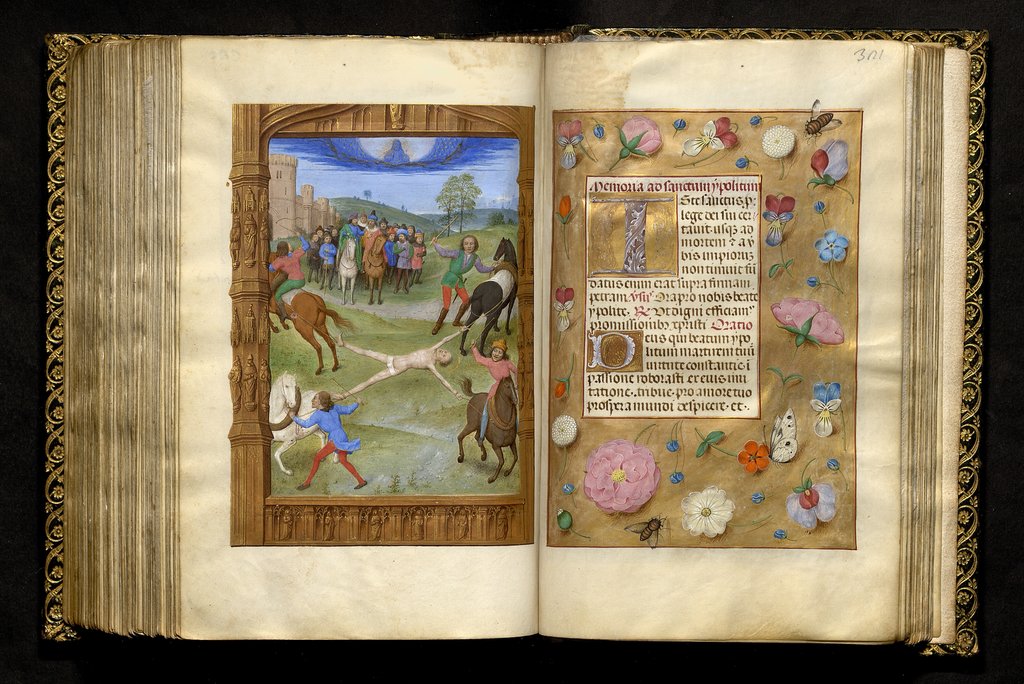 Memoria ad sanctum ypolitum
Iste sanctus p
lege dei sui cer
tauit usque ad
mortem ⁊ a v̄
bis impiorum
non timuit fū
datus enim erat supra firmam
petram. V̄sꝰ Ora pro nobis beate
ypolite. ℟ Vt digni efficiamʼ
promissionibꝰ xpristi Oratio
Deus qui beatum ypo
litum martirem tuū
virtute constantie ī
passione roborasti ex eius imi
tatione. tribue. pro amore tuo
prospera mundi despicere. et.